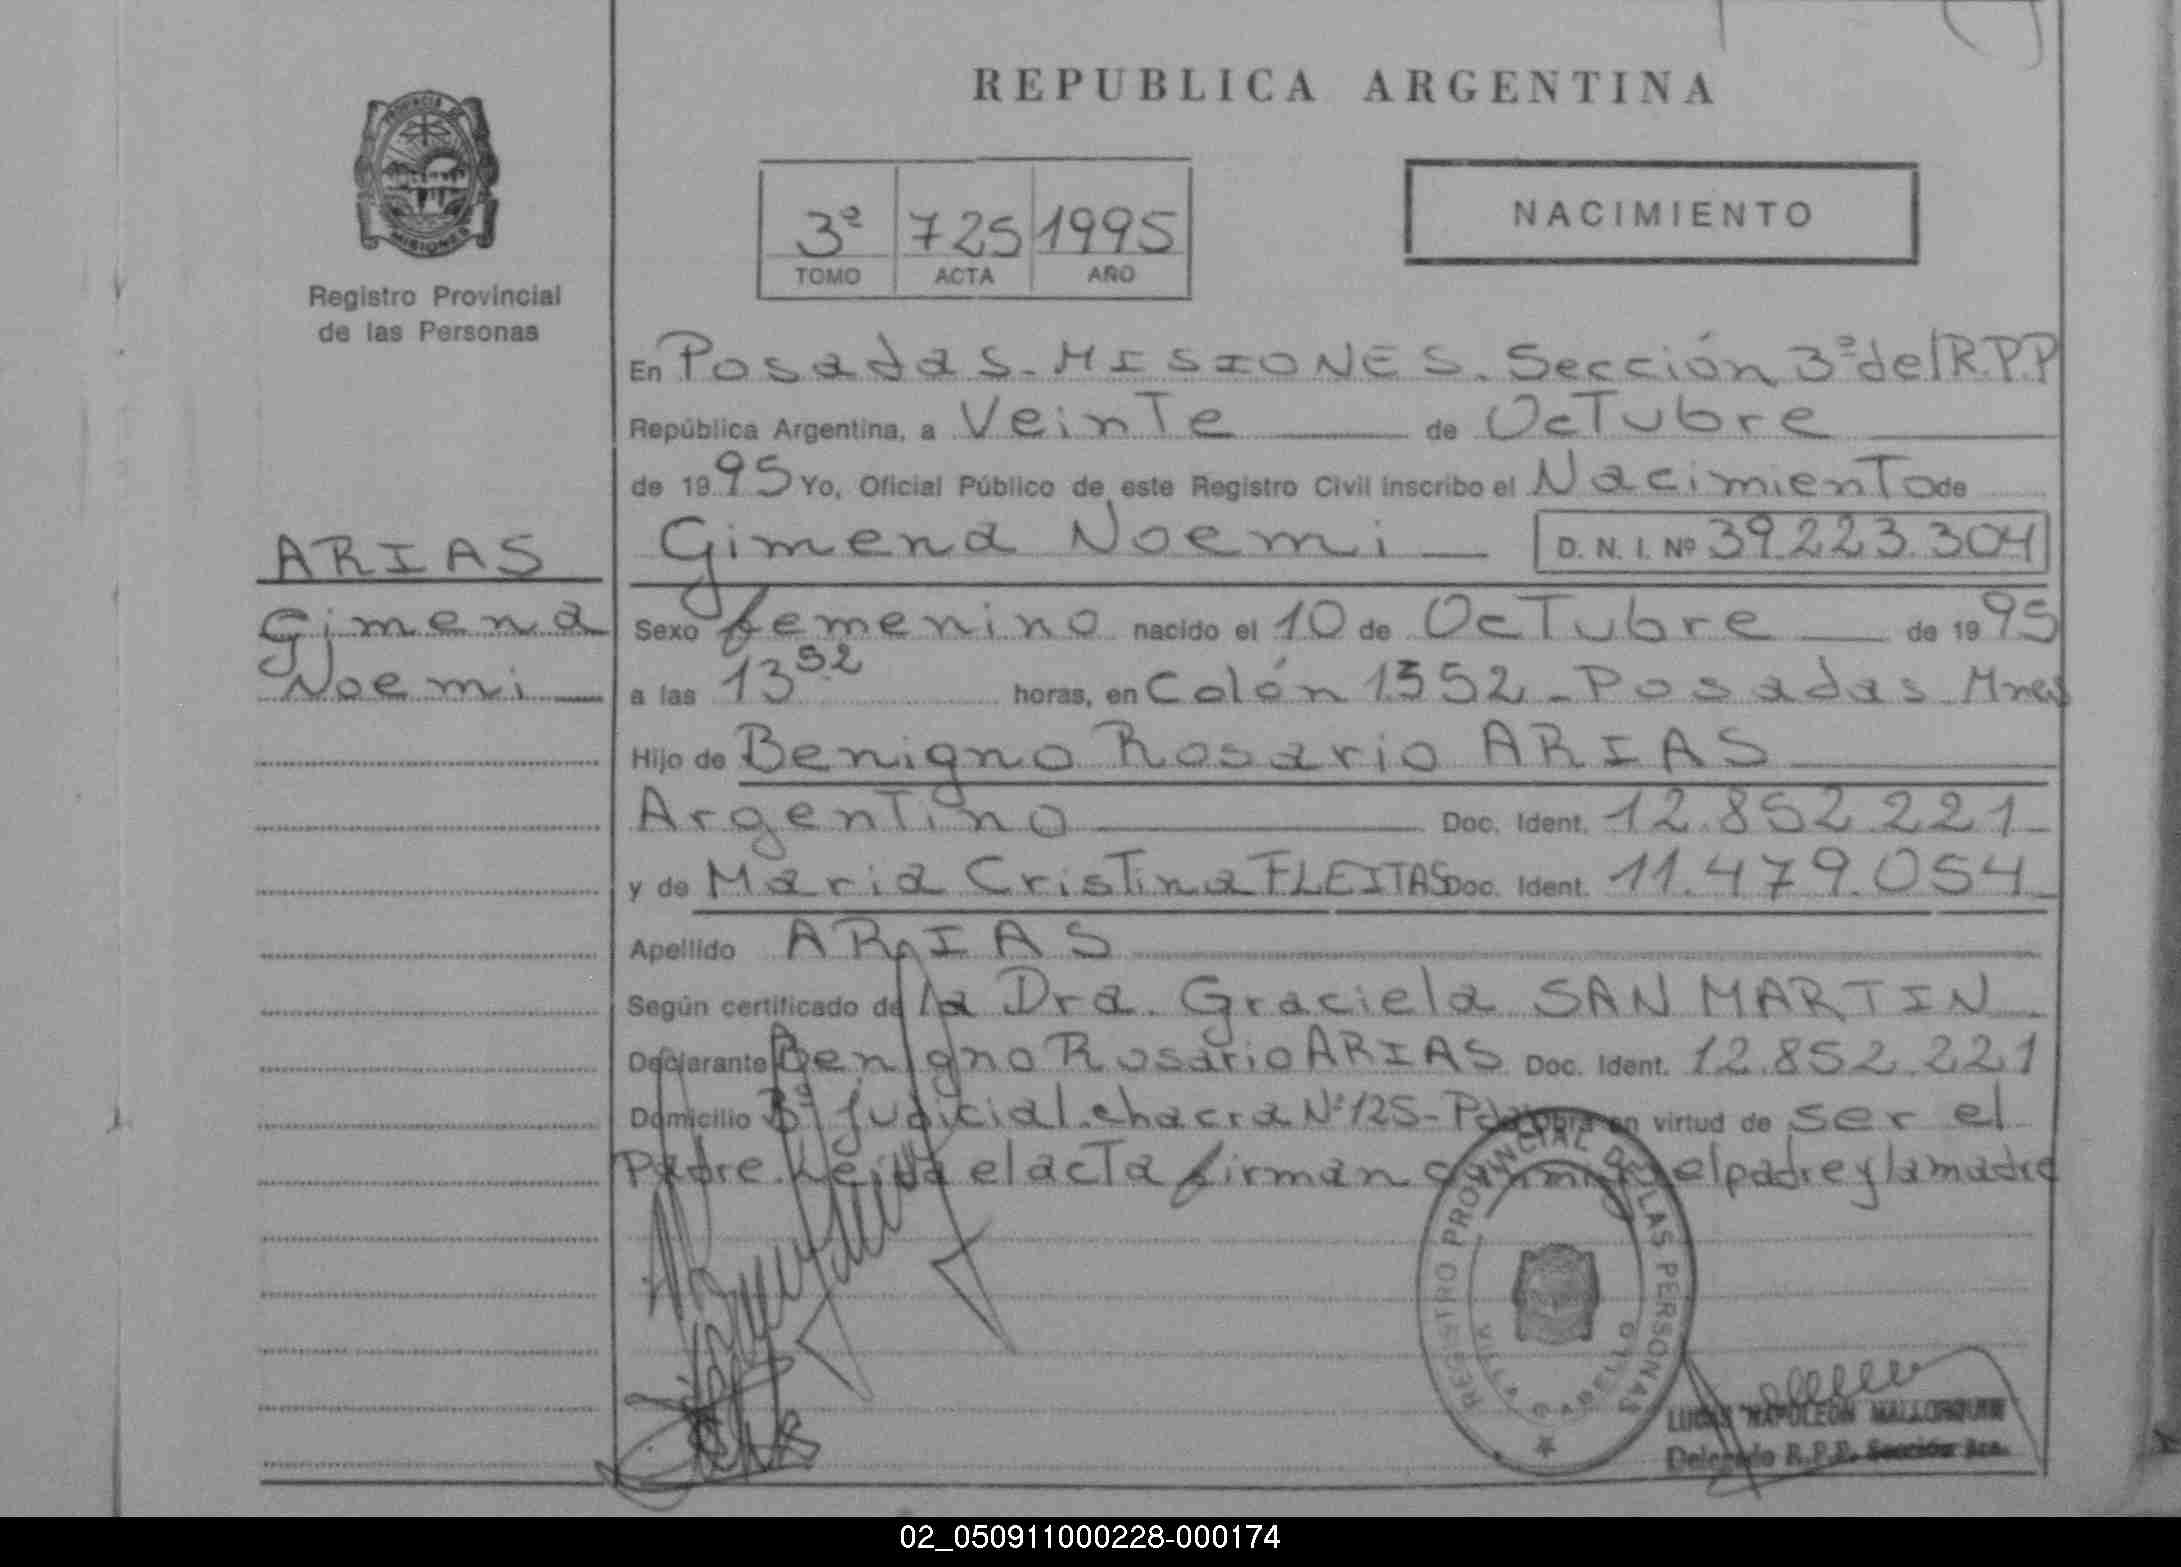 REPUBLICA ARGENTINA
PROVINCIA DE
MISIONES
Registro Provincial
de las Personas
3º 725 1995
TOMO ACTA AÑO
NACIMIENTO
En Posadas - MISIONES. Sección 3ª del R.P.P
República Argentina, a Veinte de Octubre
de 1995 Yo, Oficial Público de este Registro Civil inscribo el Nacimiento de
Gimena Noemi D. N. I. Nº 39.223.304
ARIAS
Gimena
Noemi
Sexo femenino nacido el 10 de Octubre de 1995
a las 13 52 horas, en Colón 1352 - Posadas Mnes
Hijo de Benigno Rosario ARIAS
Argentino Doc. Ident. 12.852.221
y de Maria Cristina FLEITAS Doc. Ident. 11.479.054
Apellido ARIAS
Según certificado de la Dra. Graciela SAN MARTIN
Declarante Benigno Rosario ARIAS Doc. Ident. 12.852.221
Domicilio Bº Judicial. chacra Nº 125 - Pdas Obra en virtud de ser el
Padre. Leida el acta firman conmigo el padre y la madre
REGISTRO PROVINCIAL DE LAS PERSONAS
VILLA CABELLO
LUCAS NAPOLEON MALLORQUIN
Delegado R.P.P. Sección 3ra.
02_050911000228-000174